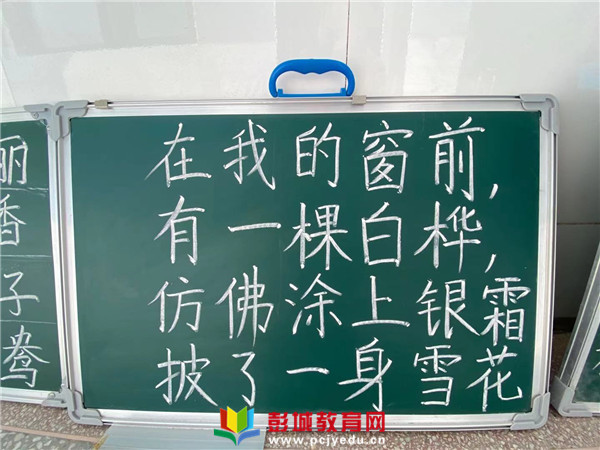 在我的窗前,
有一棵白桦,
仿佛涂上银霜
披了一身雪花
丽
香
子
鸯
彭城教育网
www.pcjyedu.cn